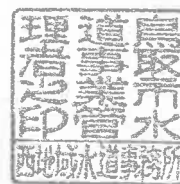 鳥取市水
道事業管
理者之印
西地域水道事務所